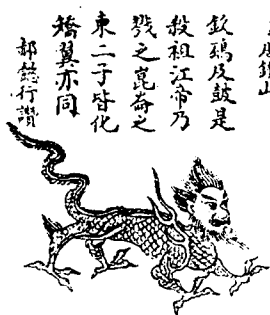 鍾山
欽䲹及鼓是
殺祖江帝乃
戮之崑崙之
東二子皆化
矯翼亦同
郝懿行讚